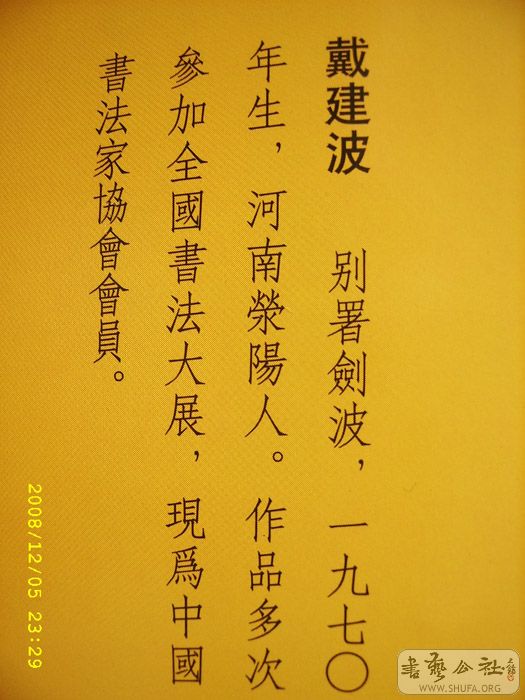 戴建波 别署劍波，一九七〇
年生，河南滎陽人。作品多次
參加全國書法大展，現爲中國
書法家協會會員。
2008/12/05 23:29
書藝公社
WWW.SHUFA.ORG